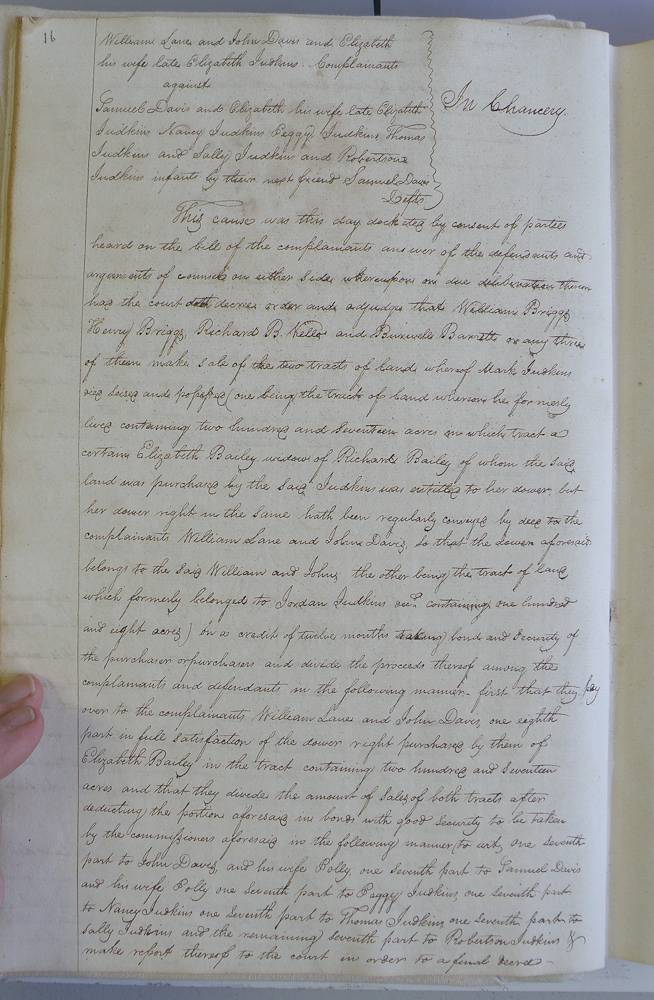 16
William Lane and John Davis and Elizabeth
his wife late Elizabeth Judkins Complainants
against
Samuel Davis and Elizabeth his wife late Elizabeth
Judkins Nancy Judkins Peggy Judkins Thomas
Judkins and Sally Judkins and Robertson
Judkins infants by their next friend Samuel Davis
Defts
In Chancery.
This cause was this day docketed by consent of parties
heard on the bill of the complainants answer of the defendants and
arguments of counsel on either side whereupon on due deliberation thereon
had the court doth decree order and adjudge that William Briggs
Henry Briggs, Richard B. Kello and Burwell Barrett or any three
of them make sale of the two tracts of land whereof Mark Judkins
died seized and possessed (one being the tract of land whereon he formerly
lived containing two hundred and seventeen acres in which tract a
certain Elizabeth Bailey widow of Richard Bailey of whom the said
land was purchased by the said Judkins was entitled to her dower, but
her dower right in the same hath been regularly conveyed by deed to the
complainants William Lane and John Davis, so that the dower aforesaid
belongs to the said William and John, the other being the tract of land
which formerly belonged to Jordan Judkins containing one hundred
and eight acres) on a credit of twelve months taking bond and security of
the purchaser or purchasers and divide the proceeds thereof among the
complainants and defendants in the following manner - first that they pay
over to the complainants William Lane and John Davis, one eighth
part in full satisfaction of the dower right purchased by them of
Elizabeth Bailey in the tract containing two hundred and seventeen
acres and that they divide the amount of sales of both tracts after
deducting the portion aforesaid in bonds with good security to be taken
by the commissioners aforesaid in the following manner, to wit, one seventh
part to John Davis, and his wife Polly, one seventh part to Samuel Davis
and his wife Polly one seventh part to Peggy Judkins, one seventh part
to Nancy Judkins one seventh part to Thomas Judkins, one seventh part to
Sally Judkins and the remaining seventh part to Robertson Judkins &
make report thereof to the court in order to a final decree -